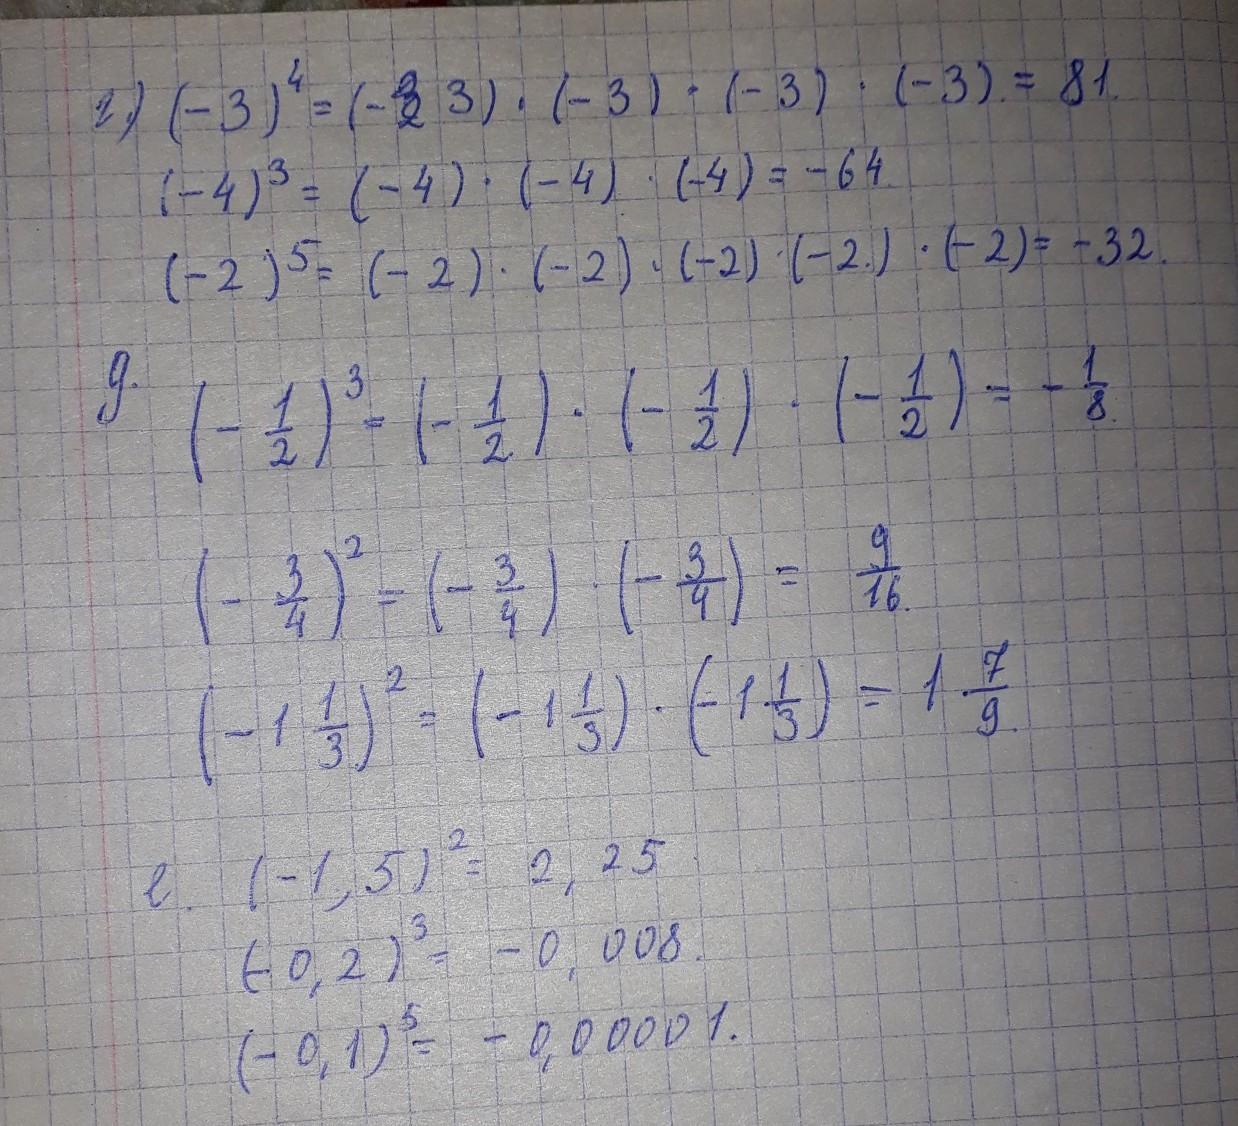 г.) (-3)⁴ = (- 3) · (-3) · (-3) · (-3) = 81.
(-4)³ = (-4) · (-4) · (-4) = -64.
(-2)⁵ = (-2) · (-2) · (-2) · (-2.) · (-2) = -32.
д. (- 1/2)³ = (- 1/2) · (- 1/2) · (- 1/2) = - 1/8.
(- 3/4)² = (- 3/4) · (- 3/4) = 9/16.
(-1 1/3)² = (-1 1/3) · (-1 1/3) = 1 7/9.
е. (-1,5)² = 2,25
(-0,2)³ = -0,008.
(-0,1)⁵ = -0,00001.